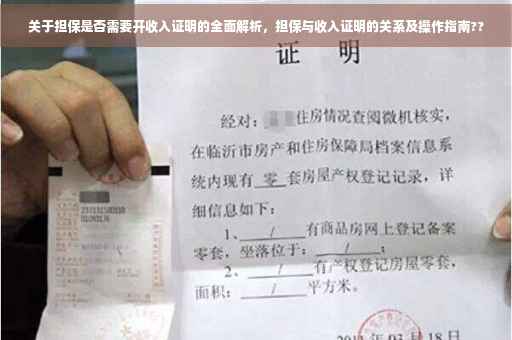 关于担保是否需要开收入证明的全面解析，担保与收入证明的关系及操作指南??
证 明
经对: 住房情况查阅微机核实,
在临沂市房产和住房保障局档案信息系
统内现有 零 套房屋产权登记记录, 详
细信息如下:
1、 / 有商品房网上登记备案
零套, 坐落位于: / ;
2、 / 有产权登记房屋零套,
面积: / 平方米。
03 月 18 日